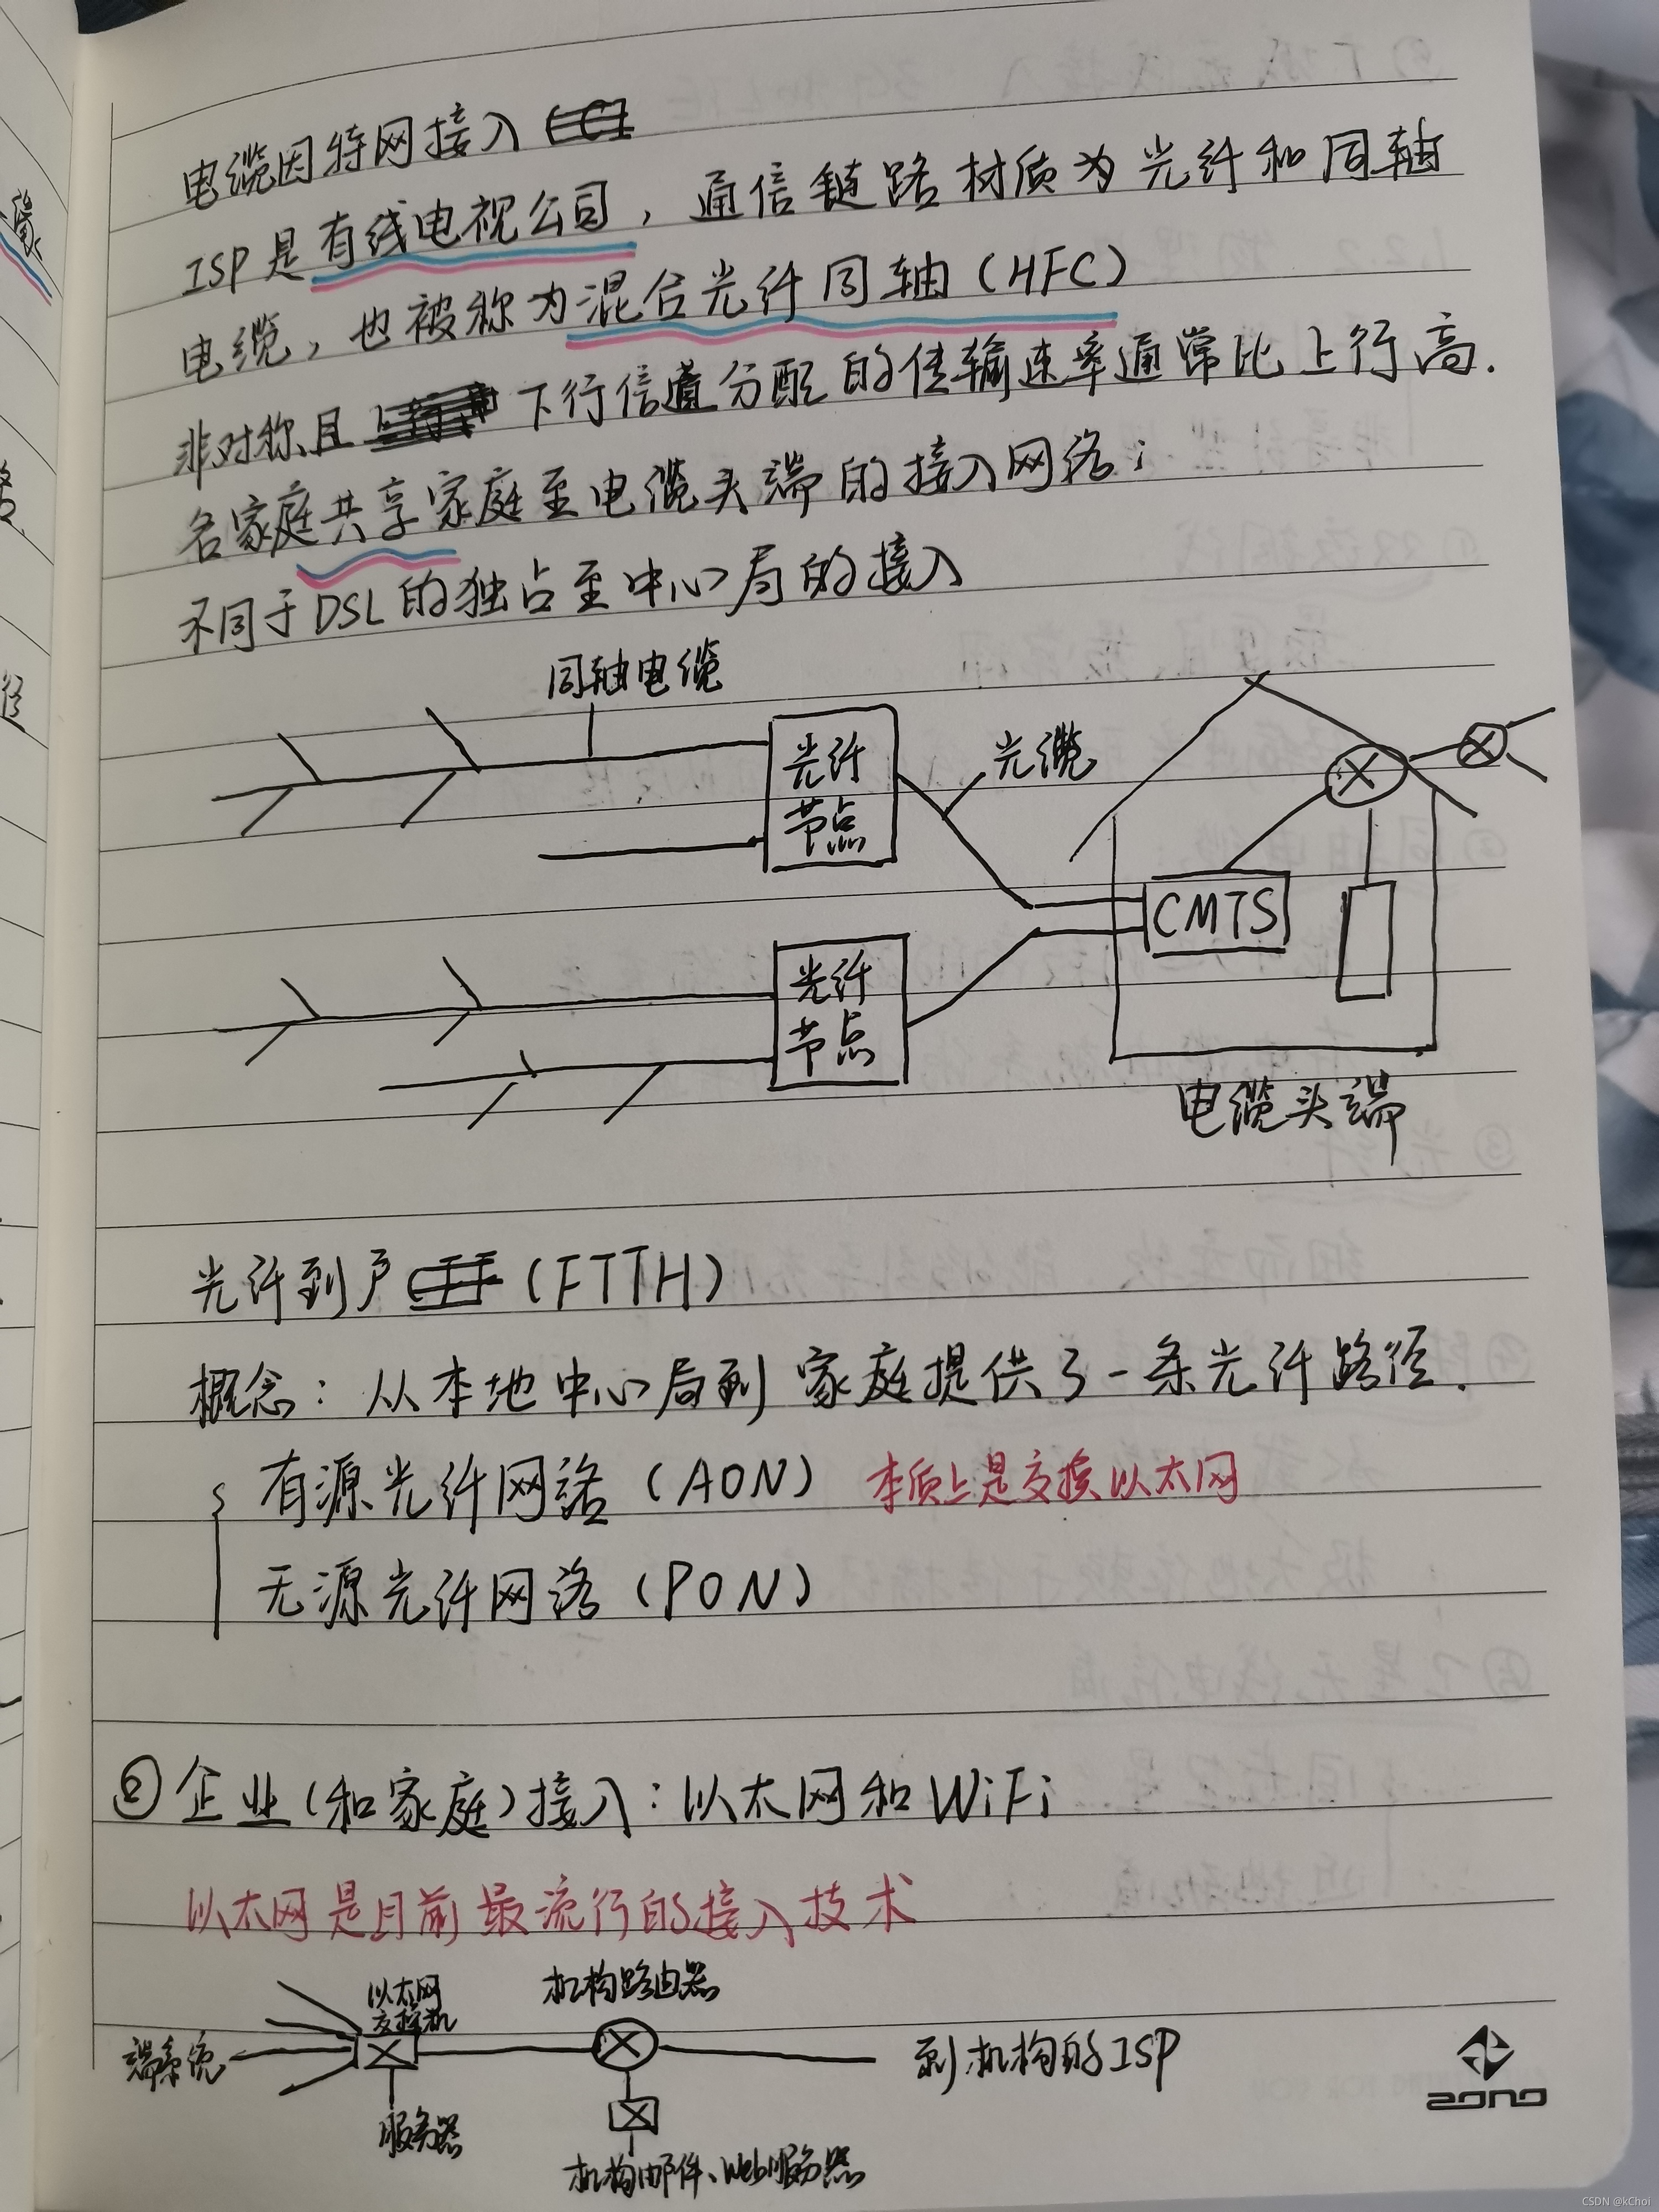 电缆因特网接入
ISP是有线电视公司，通信链路材质为光纤和同轴
电缆，也被称为混合光纤同轴(HFC)
非对称且 下行信道分配的传输速率通常比上行高.
各家庭共享家庭至电缆头端的接入网络；
不同于DSL的独占至中心局的接入
同轴电缆
光纤
节点
光缆
CMTS
光纤
节点
电缆头端
光纤到户 (FTTH)
概念：从本地中心局到家庭提供了一条光纤路径.
有源光纤网络(AON) 本质上是交换以太网
无源光纤网络(PON)
② 企业(和家庭)接入：以太网和WiFi
以太网是目前最流行的接入技术
以太网
交换机
机构路由器
端系统
到机构的ISP
服务器
机构邮件、Web服务器
CSDN @kChoi